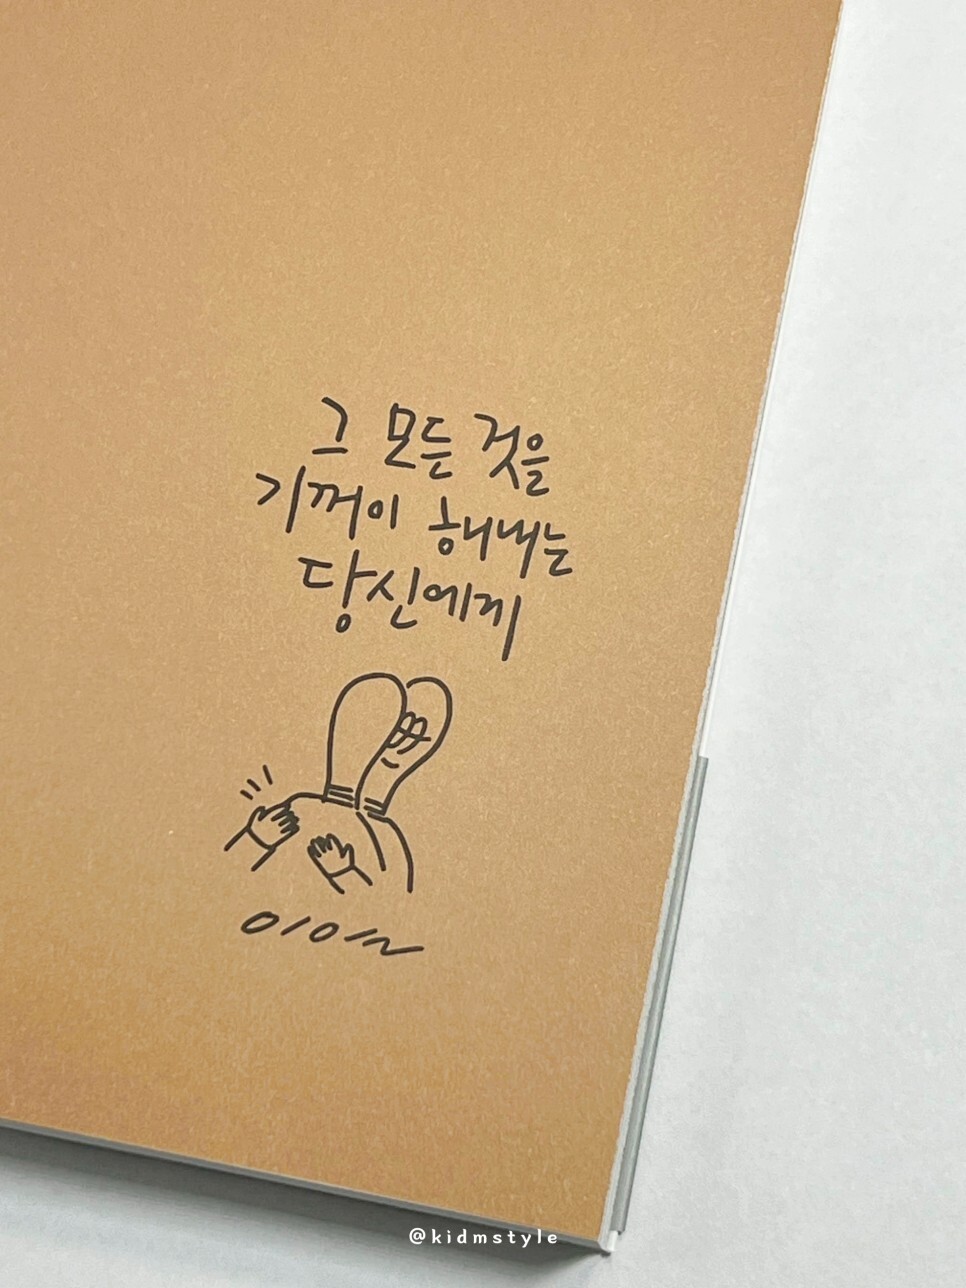 그 모든 것을
기꺼이 해내는
당신에게
@kidmstyle